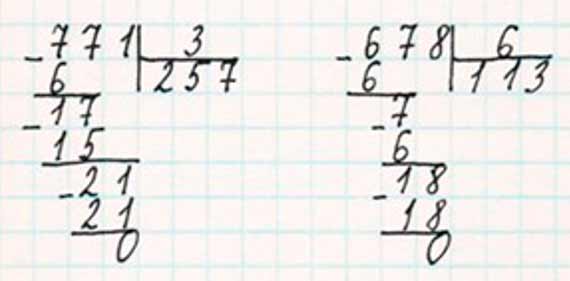 -771|3
6 257
-17
15
-21
21
0
-678|6
6 113
-7
6
-18
18
0